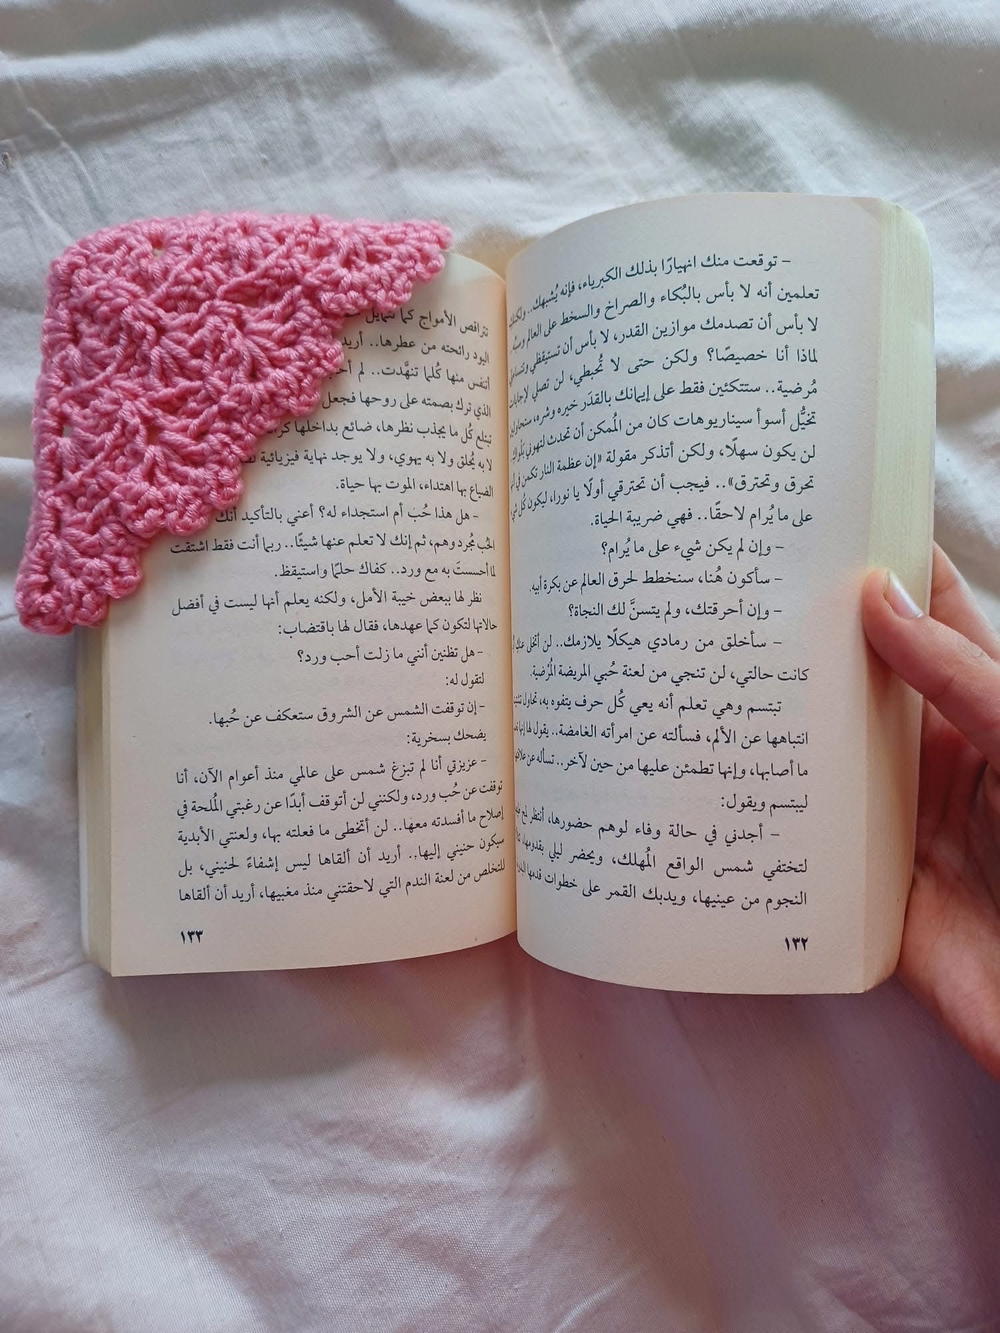 – توقعت منك انهيارًا بذلك الكبرياء، فإنه يُشبهك.. ولكنك
تعلمين أنه لا بأس بالبُكاء والصراخ والسخط على العالم
لا بأس أن تصدمك موازين القدر، لا بأس أن تستيقظي
لماذا أنا خصيصًا؟ ولكن حتى لا تُحبطي، لن تصلي لإجابات
مُرضية.. ستتكئين فقط على إيمانك بالقدَر خيره وشره،
تخيُّل أسوأ سيناريوهات كان من المُمكن أن تحدث لتهوني
لن يكون سهلًا، ولكن أتذكر مقولة «إن عظمة النار تكمن في
تحرق وتحترق».. فيجب أن تحترقي أولًا يا نورا، ليكون كُل
على ما يُرام لاحقًا.. فهي ضريبة الحياة.
– وإن لم يكن شيء على ما يُرام؟
– سأكون هُنا، سنخطط لحرق العالم عن بكرة أبيه.
– وإن أحرقتك، ولم يتسنَّ لك النجاة؟
– سأخلق من رمادي هيكلًا يلازمك.. لن أتخلى
كانت حالتي، لن تنجي من لعنة حُبي المريضة المُرْضية.
تبتسم وهي تعلم أنه يعي كُل حرف يتفوه به، تحاول
انتباهها عن الألم، فسألته عن امرأته الغامضة.. يقول لها
ما أصابها، وإنها تطمئن عليها من حين لآخر.. تسأله عن
ليبتسم ويقول:
– أجدني في حالة وفاء لوهم حضورها، أنتظر
لتختفي شمس الواقع المُهلك، ويحضر ليلي بقدومها،
النجوم من عينيها، ويدبك القمر على خطوات قدمها
١٣٢
تتراقص الأمواج كما تتمايل
اليود رائحته من عطرها.. أريد
أتنفس منها كُلما تنهَّدت.. لم
الذي ترك بصمته على روحها فجعل
تبتلع كُل ما يجذب نظرها، ضائع بداخلها
لا به يُحلق ولا به يهوي، ولا يوجد نهاية فيزيائية
الضياع بها اهتداء، الموت بها حياة.
– هل هذا حُب أم استجداء له؟ أعني بالتأكيد أنك
الحُب مُجرد وهم، ثم إنك لا تعلم عنها شيئًا.. ربما أنت فقط اشتقت
لما أحسستَ به مع ورد.. كفاك حلمًا واستيقظ.
نظر لها ببعض خيبة الأمل، ولكنه يعلم أنها ليست في أفضل
حالاتها لتكون كما عهدها، فقال لها باقتضاب:
– هل تظنين أنني ما زلت أحب ورد؟
لتقول له:
– إن توقفت الشمس عن الشروق ستعكف عن حُبها.
يضحك بسخرية:
– عزيزتي أنا لم تبزغ شمس على عالمي منذ أعوام الآن، أنا
توقفت عن حُب ورد، ولكنني لن أتوقف أبدًا عن رغبتي المُلحة في
إصلاح ما أفسدته معها.. لن أتخطى ما فعلته بها، ولعنتي الأبدية
سيكون حنيني إليها.. أريد أن ألقاها ليس إشفاءً لحنيني، بل
للتخلص من لعنة الندم التي لاحقتني منذ مغيبها، أريد أن ألقاها
١٣٣